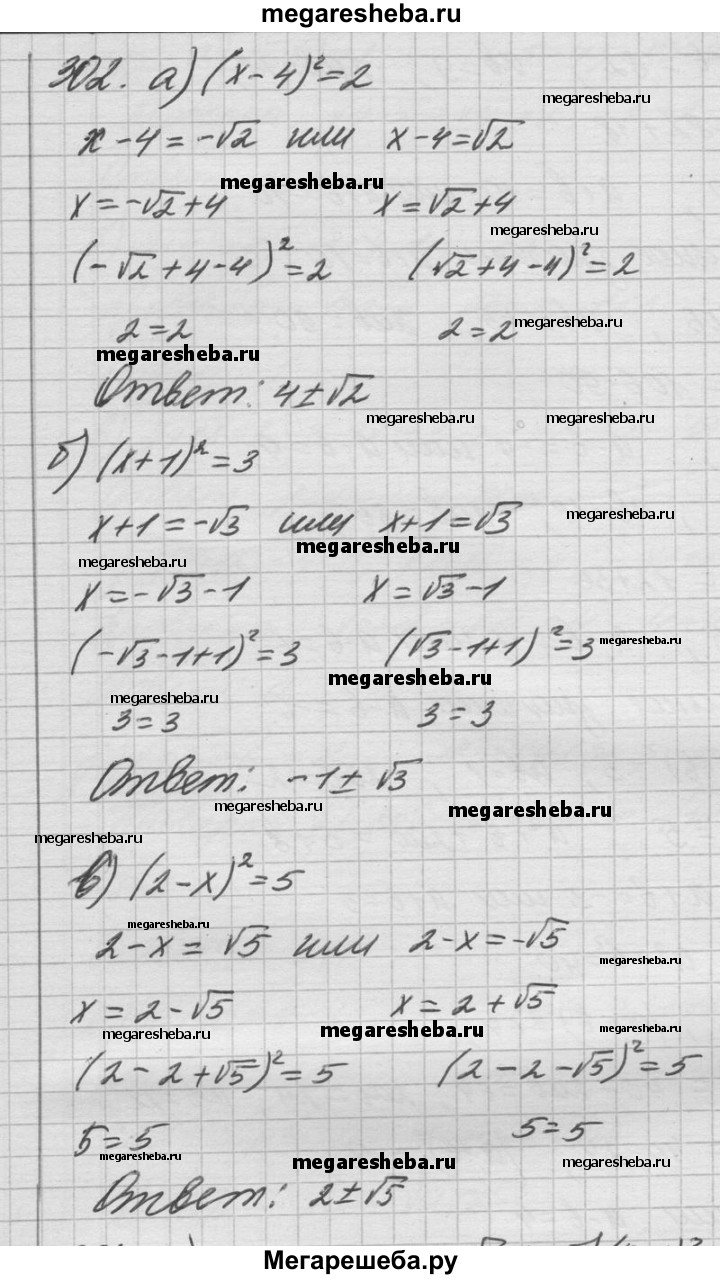 megaresheba.ru
302. а) (x-4)²=2
megaresheba.ru
x-4=-√2 или x-4=√2
megaresheba.ru
x=-√2+4 x=√2+4
megaresheba.ru
(-√2+4-4)²=2 (√2+4-4)²=2
2=2 2=2 megaresheba.ru
megaresheba.ru
Ответ: 4±√2
megaresheba.ru megaresheba.ru
б) (x+1)²=3
x+1=-√3 или x+1=√3 megaresheba.ru
megaresheba.ru
megaresheba.ru
x=-√3-1 x=√3-1
(-√3-1+1)²=3 (√3-1+1)²=3 megaresheba.ru
megaresheba.ru
megaresheba.ru
3=3 3=3
Ответ: -1±√3
megaresheba.ru megaresheba.ru
megaresheba.ru
в) (2-x)²=5
megaresheba.ru
2-x=√5 или 2-x=-√5
megaresheba.ru
x=2-√5 x=2+√5
megaresheba.ru megaresheba.ru megaresheba.ru
(2-2+√5)²=5 (2-2-√5)²=5
5=5 5=5
megaresheba.ru megaresheba.ru megaresheba.ru
Ответ: 2±√5
Мегарешеба.ру